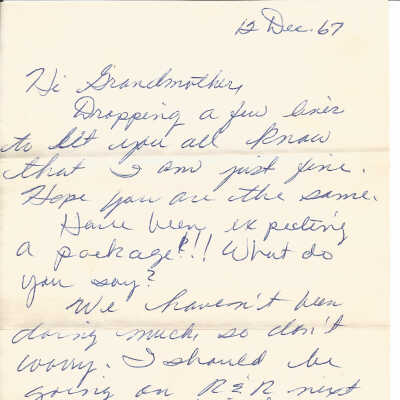 12 Dec. 67
Hi Grandmother,
Dropping a few lines
to let you all know
that I am just fine.
Hope you are the same.
Have been expecting
a package?!! What do
you say?
We haven't been
doing much, so don't
worry. I should be
going on R&R next